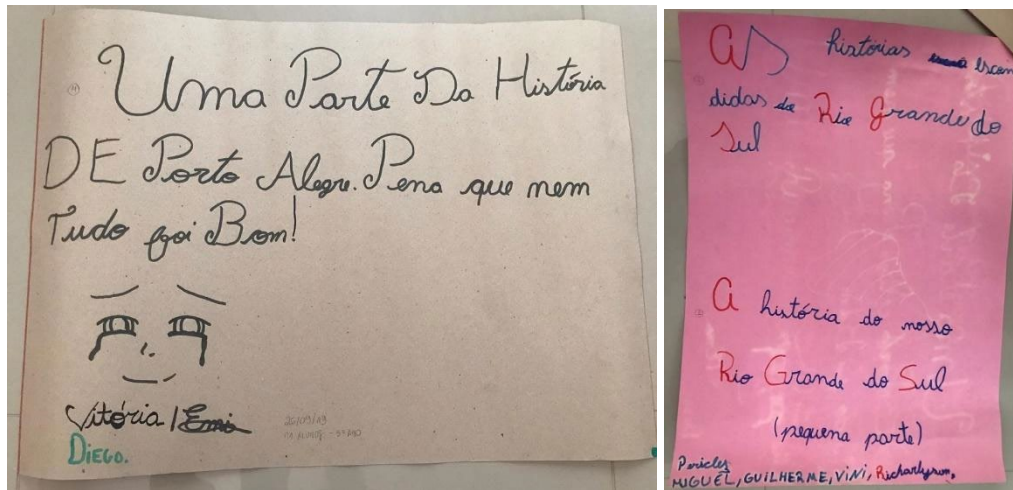 Uma Parte Da História
DE Porto Alegre. Pena que nem
Tudo foi Bom!
Vitória / Emi
DIEGO.
AS histórias Escon
didas do Rio Grande do
Sul
A história do nosso
Rio Grande do Sul
(pequena parte)
Pericles
MIGUEL, GUILHERME, VINI, Richarlyson,